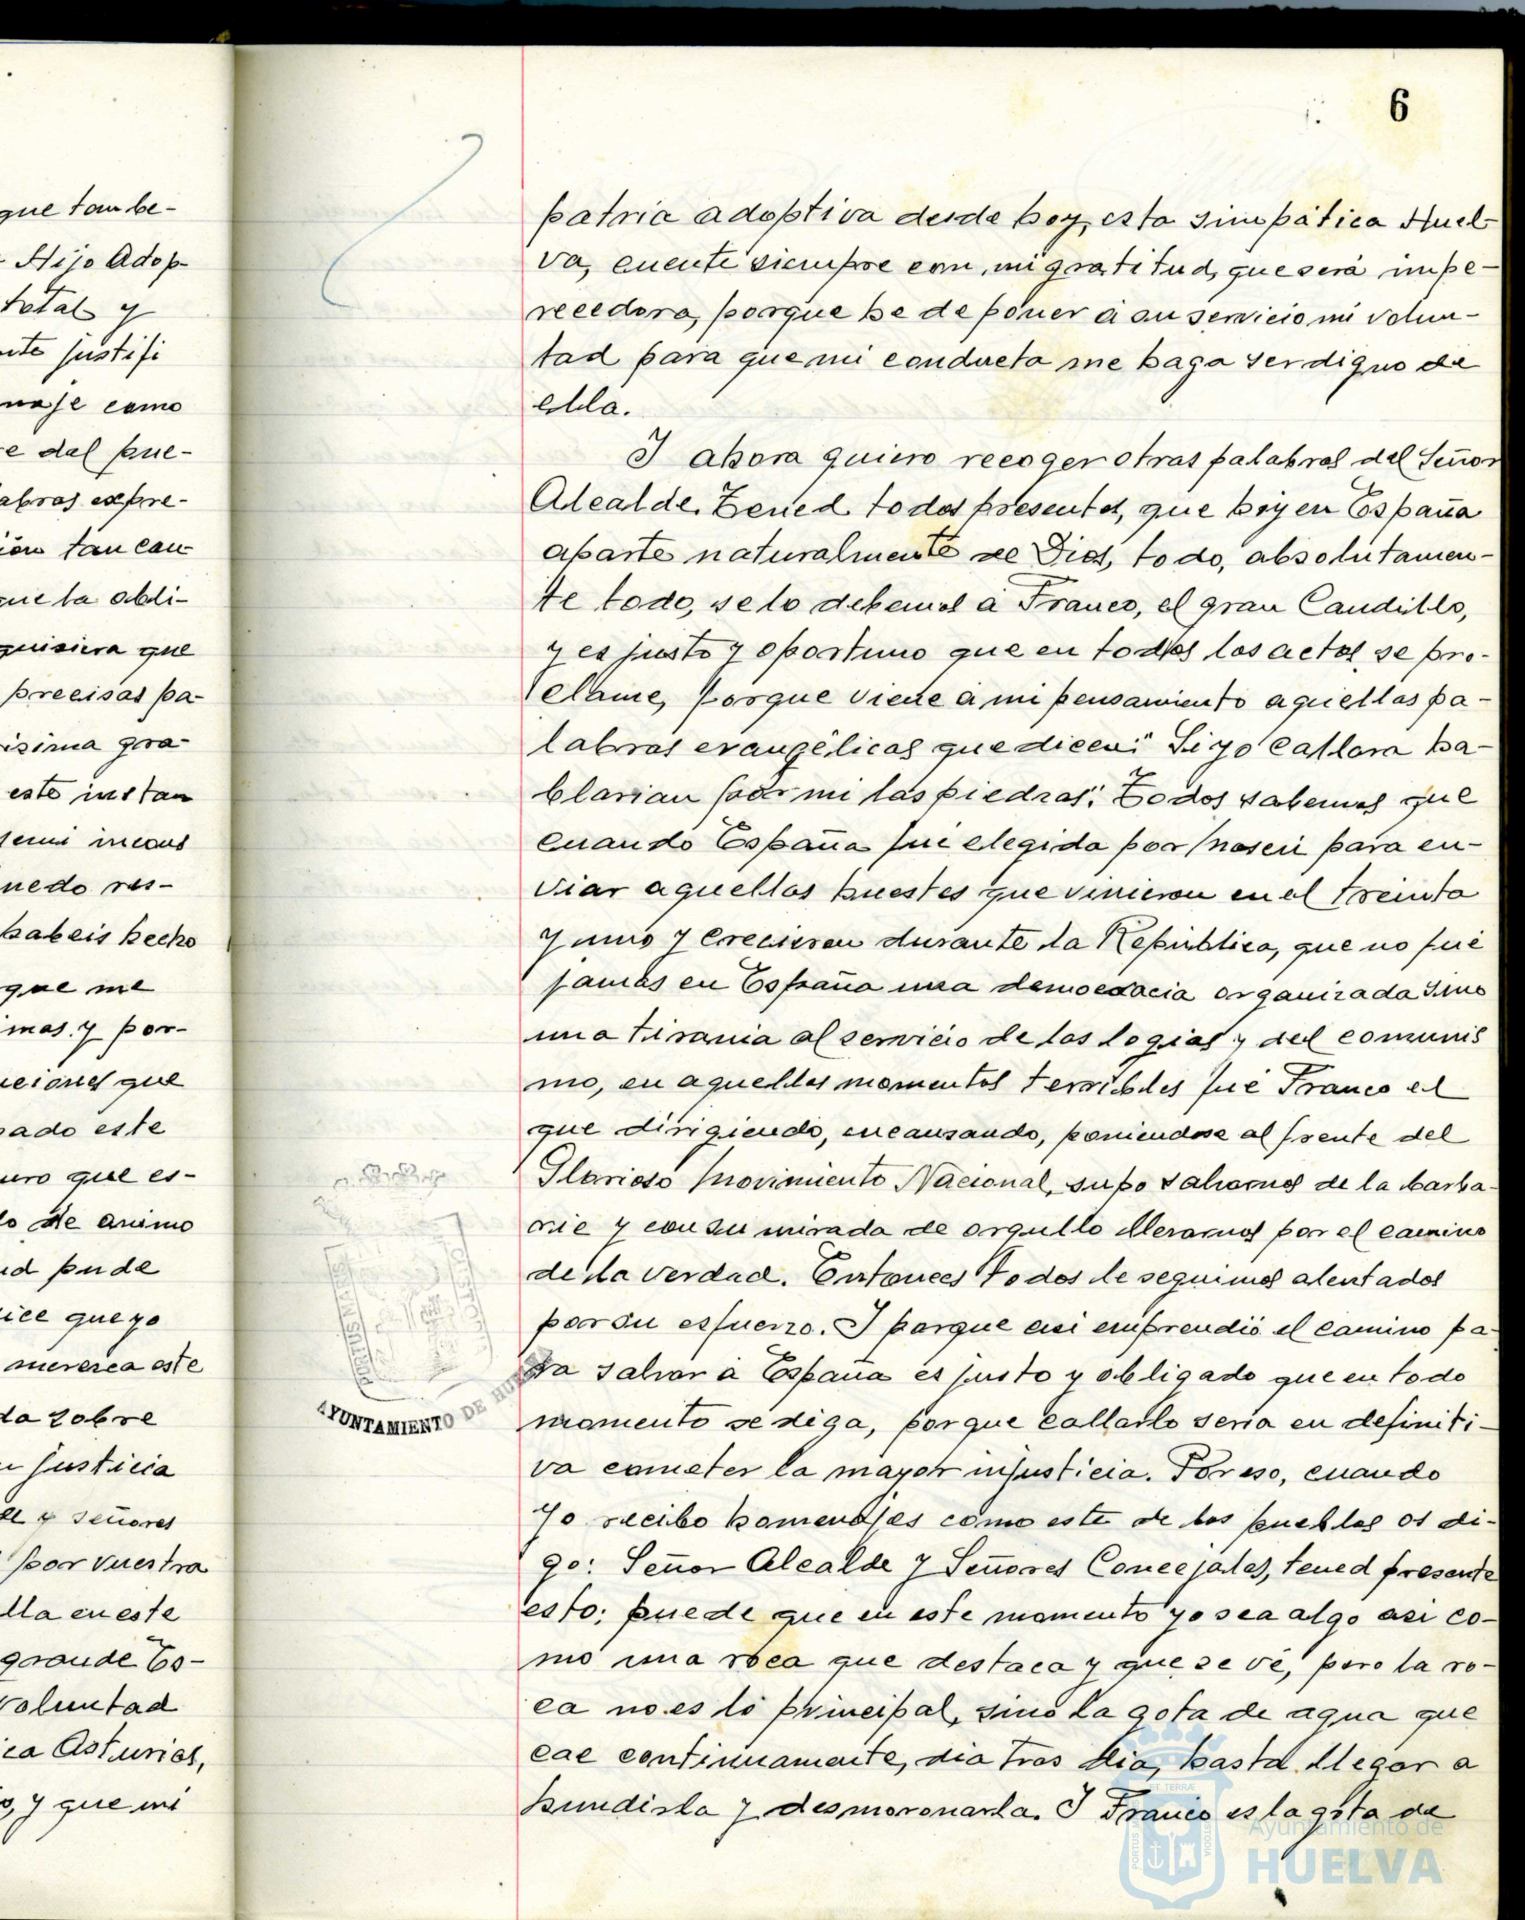 6
que tambe-
Hijo Adop-
total y
justifi
como
del pue-
expre-
tan cau-
que la obli-
quisiera que
precisas pa-
gra-
este instan
que me
y por-
que
este
que es-
de animo
pude
que yo
merezca este
sobre
justicia
y señores
por vuestra
en este
grande Es-
voluntad
Asturias,
y que mi
patria adoptiva desde hoy, esta simpática Huel-
va, cuente siempre con mi gratitud, que será impe-
recedora, porque he de poner á su servicio mi volun-
tad para que mi conducta me haga ser digno de
ella.
Y ahora quiero recoger otras palabras del Señor
Alcalde. Tened todos presentes, que hoy en España
aparte naturalmente de Dios, todo, absolutamen-
te todo, se lo debemos á Franco, el gran Caudillo,
y es justo y oportuno que en todos los actos se pro-
clame, porque viene á mi pensamiento aquellas pa-
labras evangélicas que dicen: "Si yo callara ha-
blarian por mi las piedras". Todos sabemos que
cuando España fué elegida por Moscú para en-
viar aquellas huestes que vinieron en el treinta
y uno y crecieron durante la República, que no fué
jamás en España una democracia organizada sino
una tirania al servicio de las logias y del comunis
mo, en aquellos momentos terribles fué Franco el
que dirigiendo, encausando, poniendose al frente del
Glorioso Movimiento Nacional, supo salvarnos de la barba-
rie y con su mirada de orgullo llevarnos por el camino
de la verdad. Entonces todos le seguimos alentados
por su esfuerzo. Y porque asi emprendió el camino pa-
ra salvar á España es justo y obligado que en todo
momento se diga, porque callarlo seria en definiti-
va cometer la mayor injusticia. Por eso, cuando
yo recibo homenajes como este de los pueblos os di-
go: Señor Alcalde y Señores Concejales, tened presente
esto; puede que en este momento yo sea algo asi co-
mo una roca que destaca y que se vé, pero la ro-
ca no es lo principal, sino la gota de agua que
cae continuamente, dia tras dia, hasta llegar a
hundirla y desmoronarla. Y Franco es la gota de
AYUNTAMIENTO DE HUELVA
Ayuntamiento de
HUELVA